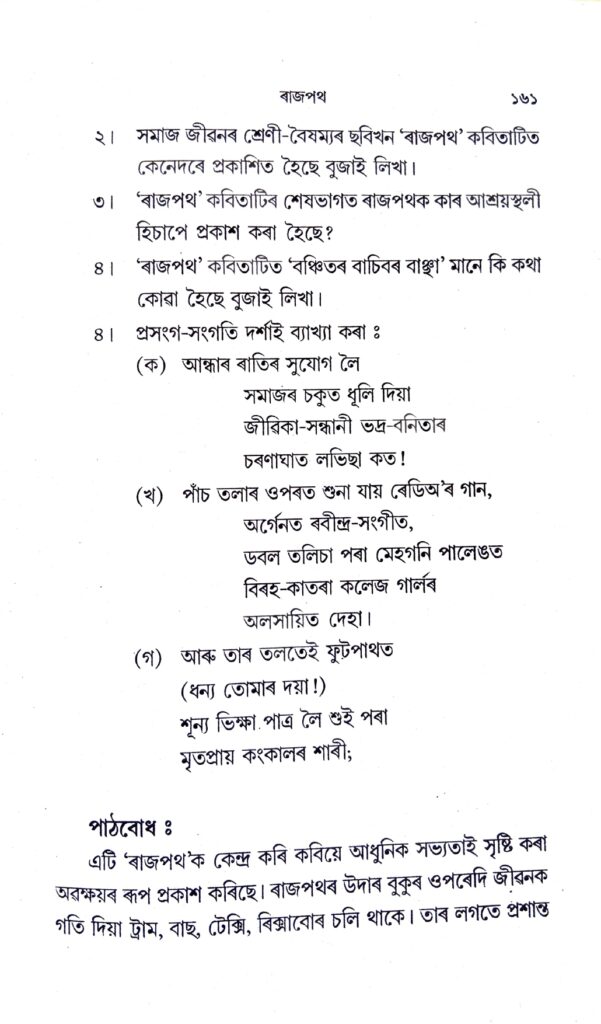 ৰাজপথ ১৬১
২। সমাজ জীৱনৰ শ্ৰেণী-বৈষম্যৰ ছবিখন ‘ৰাজপথ’ কবিতাটিত
কেনেদৰে প্ৰকাশিত হৈছে বুজাই লিখা।
৩। ‘ৰাজপথ’ কবিতাটিৰ শেষভাগত ৰাজপথক কাৰ আশ্ৰয়স্থলী
হিচাপে প্ৰকাশ কৰা হৈছে?
৪। ‘ৰাজপথ’ কবিতাটিত ‘বঞ্চিতৰ বাচিবৰ বাঞ্ছা’ মানে কি কথা
কোৱা হৈছে বুজাই লিখা।
৪। প্ৰসংগ-সংগতি দৰ্শাই ব্যাখ্যা কৰা ঃ
(ক) আন্ধাৰ ৰাতিৰ সুযোগ লৈ
সমাজৰ চকুত ধূলি দিয়া
জীৱিকা-সন্ধানী ভদ্ৰ-বনিতাৰ
চৰণাঘাত লভিছা কত!
(খ) পাঁচ তলাৰ ওপৰত শুনা যায় ৰেডিঅ’ৰ গান,
অৰ্গেনত ৰবীন্দ্ৰ-সংগীত,
ডবল তলিচা পৰা মেহগনি পালেঙত
বিৰহ-কাতৰা কলেজ গাৰ্লৰ
অলসায়িত দেহা।
(গ) আৰু তাৰ তলতেই ফুটপাথত
(ধন্য তোমাৰ দয়া!)
শূন্য ভিক্ষা পাত্ৰ লৈ শুই পৰা
মৃতপ্ৰায় কংকালৰ শাৰী;
পাঠবোধ ঃ
এটি ‘ৰাজপথ’ক কেন্দ্ৰ কৰি কবিয়ে আধুনিক সভ্যতাই সৃষ্টি কৰা
অৱক্ষয়ৰ ৰূপ প্ৰকাশ কৰিছে। ৰাজপথৰ উদাৰ বুকুৰ ওপৰেদি জীৱনক
গতি দিয়া ট্ৰাম, বাছ, টেক্সি, ৰিক্সাবোৰ চলি থাকে। তাৰ লগতে প্ৰশান্ত